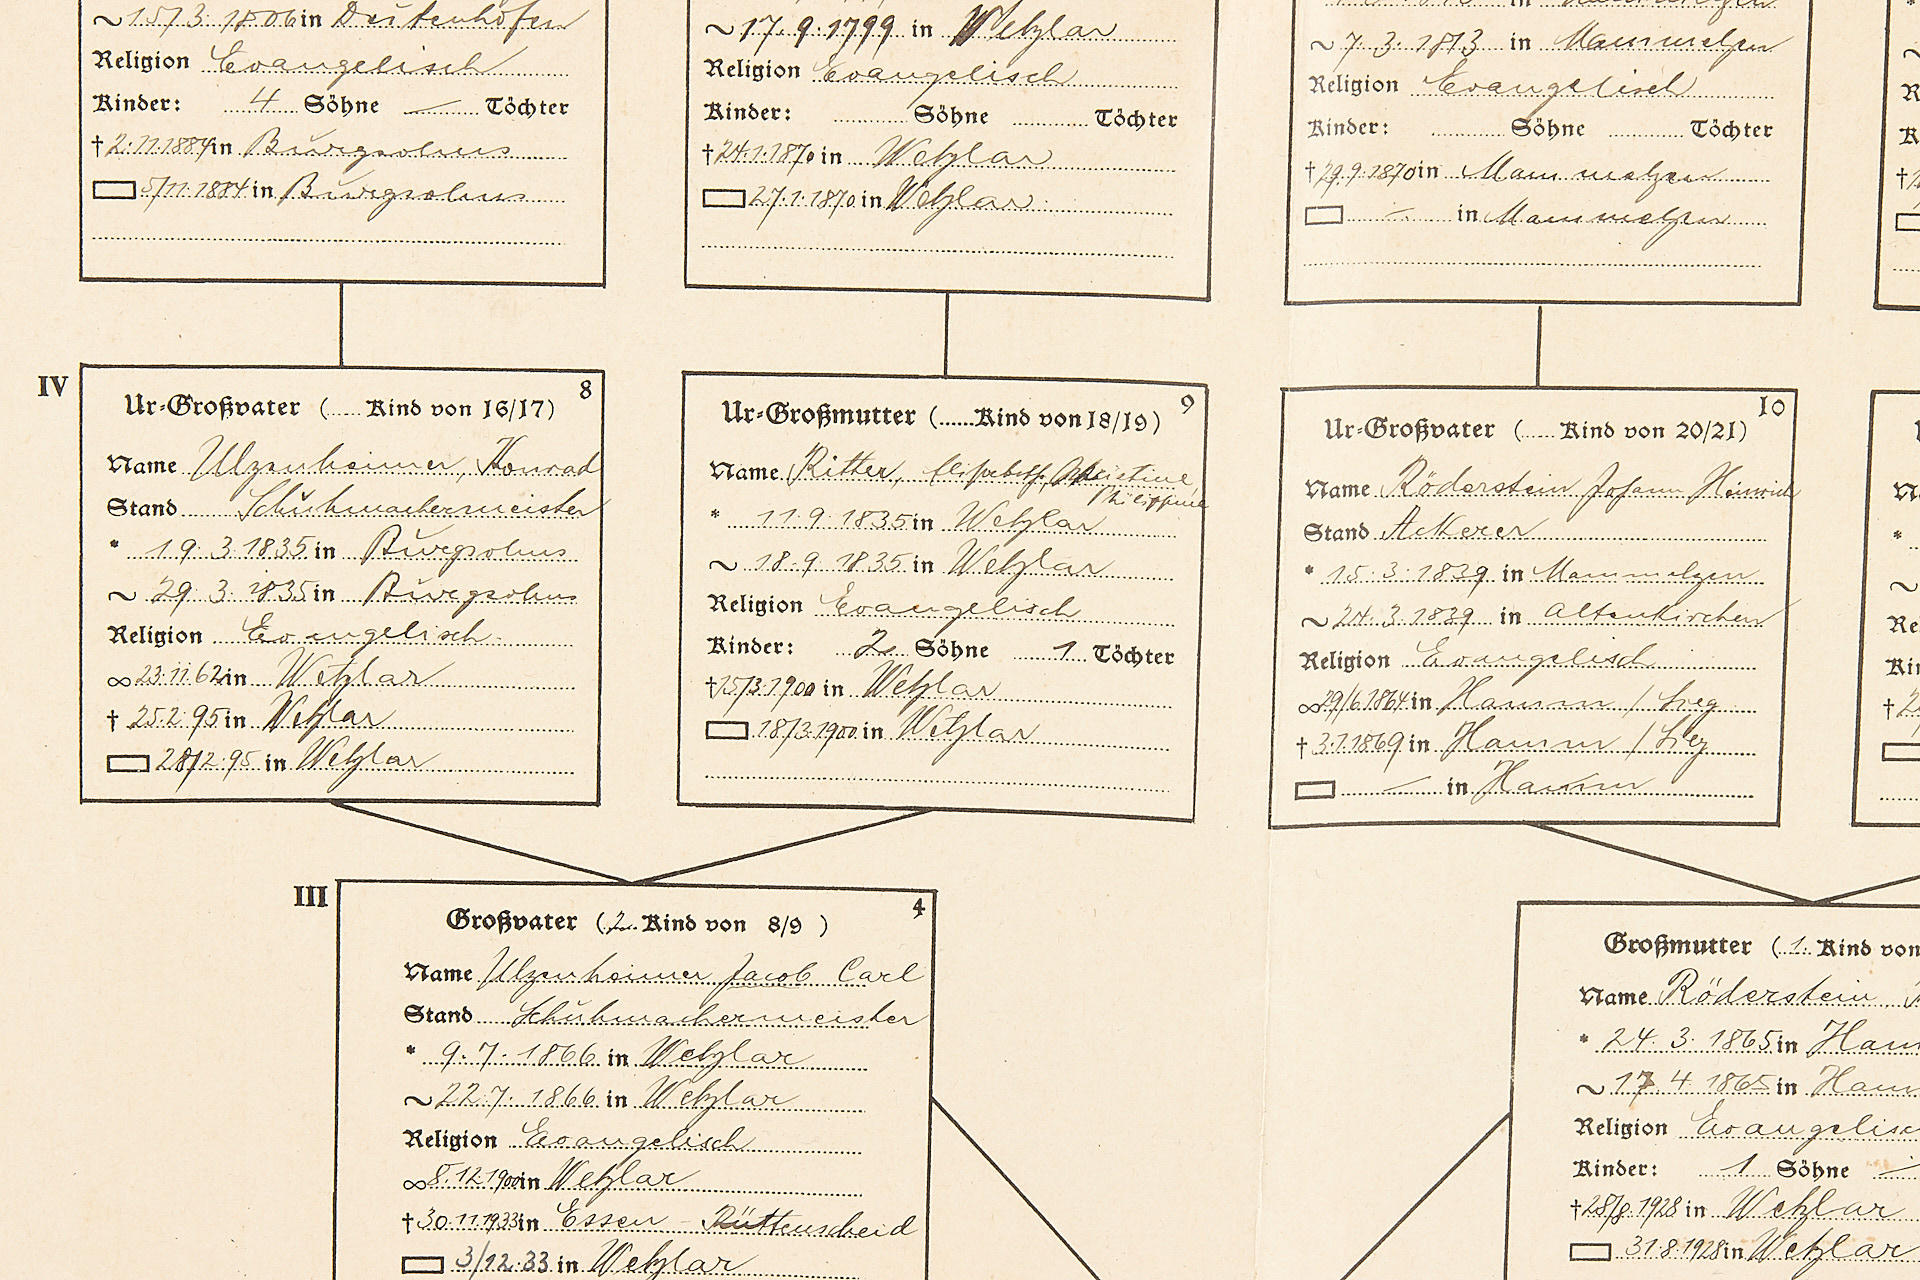 ~ 15/3. 1806 in Deutenhofen
Religion Evangelisch
Kinder: 4 Söhne — Töchter
† 2.11.1884 in Burgsolms
5/11.1884 in Burgsolms
~ 17.9.1799 in Wetzlar
Religion Evangelisch
Kinder: Söhne Töchter
† 24.1.1870 in Wetzlar
27.1.1870 in Wetzlar
~ 7.3.1813 in Mammelzen
Religion Evangelisch
Kinder: Söhne Töchter
† 29.9.1870 in Mammelzen
— in Mammelzen
IV
8
Ur-Großvater (..... Kind von 16/17)
Name Ulzenheimer, Konrad
Stand Schuhmachermeister
* 19.3.1835 in Burgsolms
~ 29.3.1835 in Burgsolms
Religion Evangelisch
∞ 23.11.62 in Wetzlar
† 25.2.95 in Wetzlar
28/2.95 in Wetzlar
9
Ur-Großmutter (...... Kind von 18/19)
Name Ritter, Elisabeth, Christine,
Philippine
* 11.9.1835 in Wetzlar
~ 18.9.1835 in Wetzlar
Religion Evangelisch
Kinder: 2 Söhne 1 Töchter
† 15/3.1900 in Wetzlar
18/3.1900 in Wetzlar
10
Ur-Großvater (..... Kind von 20/21)
Name Röderstein Johann Heinrich
Stand Ackerer
* 15.3.1839 in Mammelzen
~ 24.3.1839 in Altenkirchen
Religion Evangelisch
∞ 29/6.1864 in Hamm / Sieg
† 3.7.1869 in Hamm / Sieg
— in Hamm
III
4
Großvater (2. Kind von 8/9 )
Name Ulzenheimer Jacob Carl
Stand Schuhmachermeister
* 9.7.1866 in Wetzlar
~ 22.7.1866 in Wetzlar
Religion Evangelisch
∞ 8.12.1900 in Wetzlar
† 30.11.1933 in Essen - Rüttenscheid
3/12.33 in Wetzlar
Großmutter (1. Kind von
Name Röderstein,
* 24.3.1865 in Ham
~ 17.4.1865 in Ham
Religion Evangelis
Kinder: 1 Söhne —
† 28/8.1928 in Wetzlar
31.8.1928 in Wetzlar